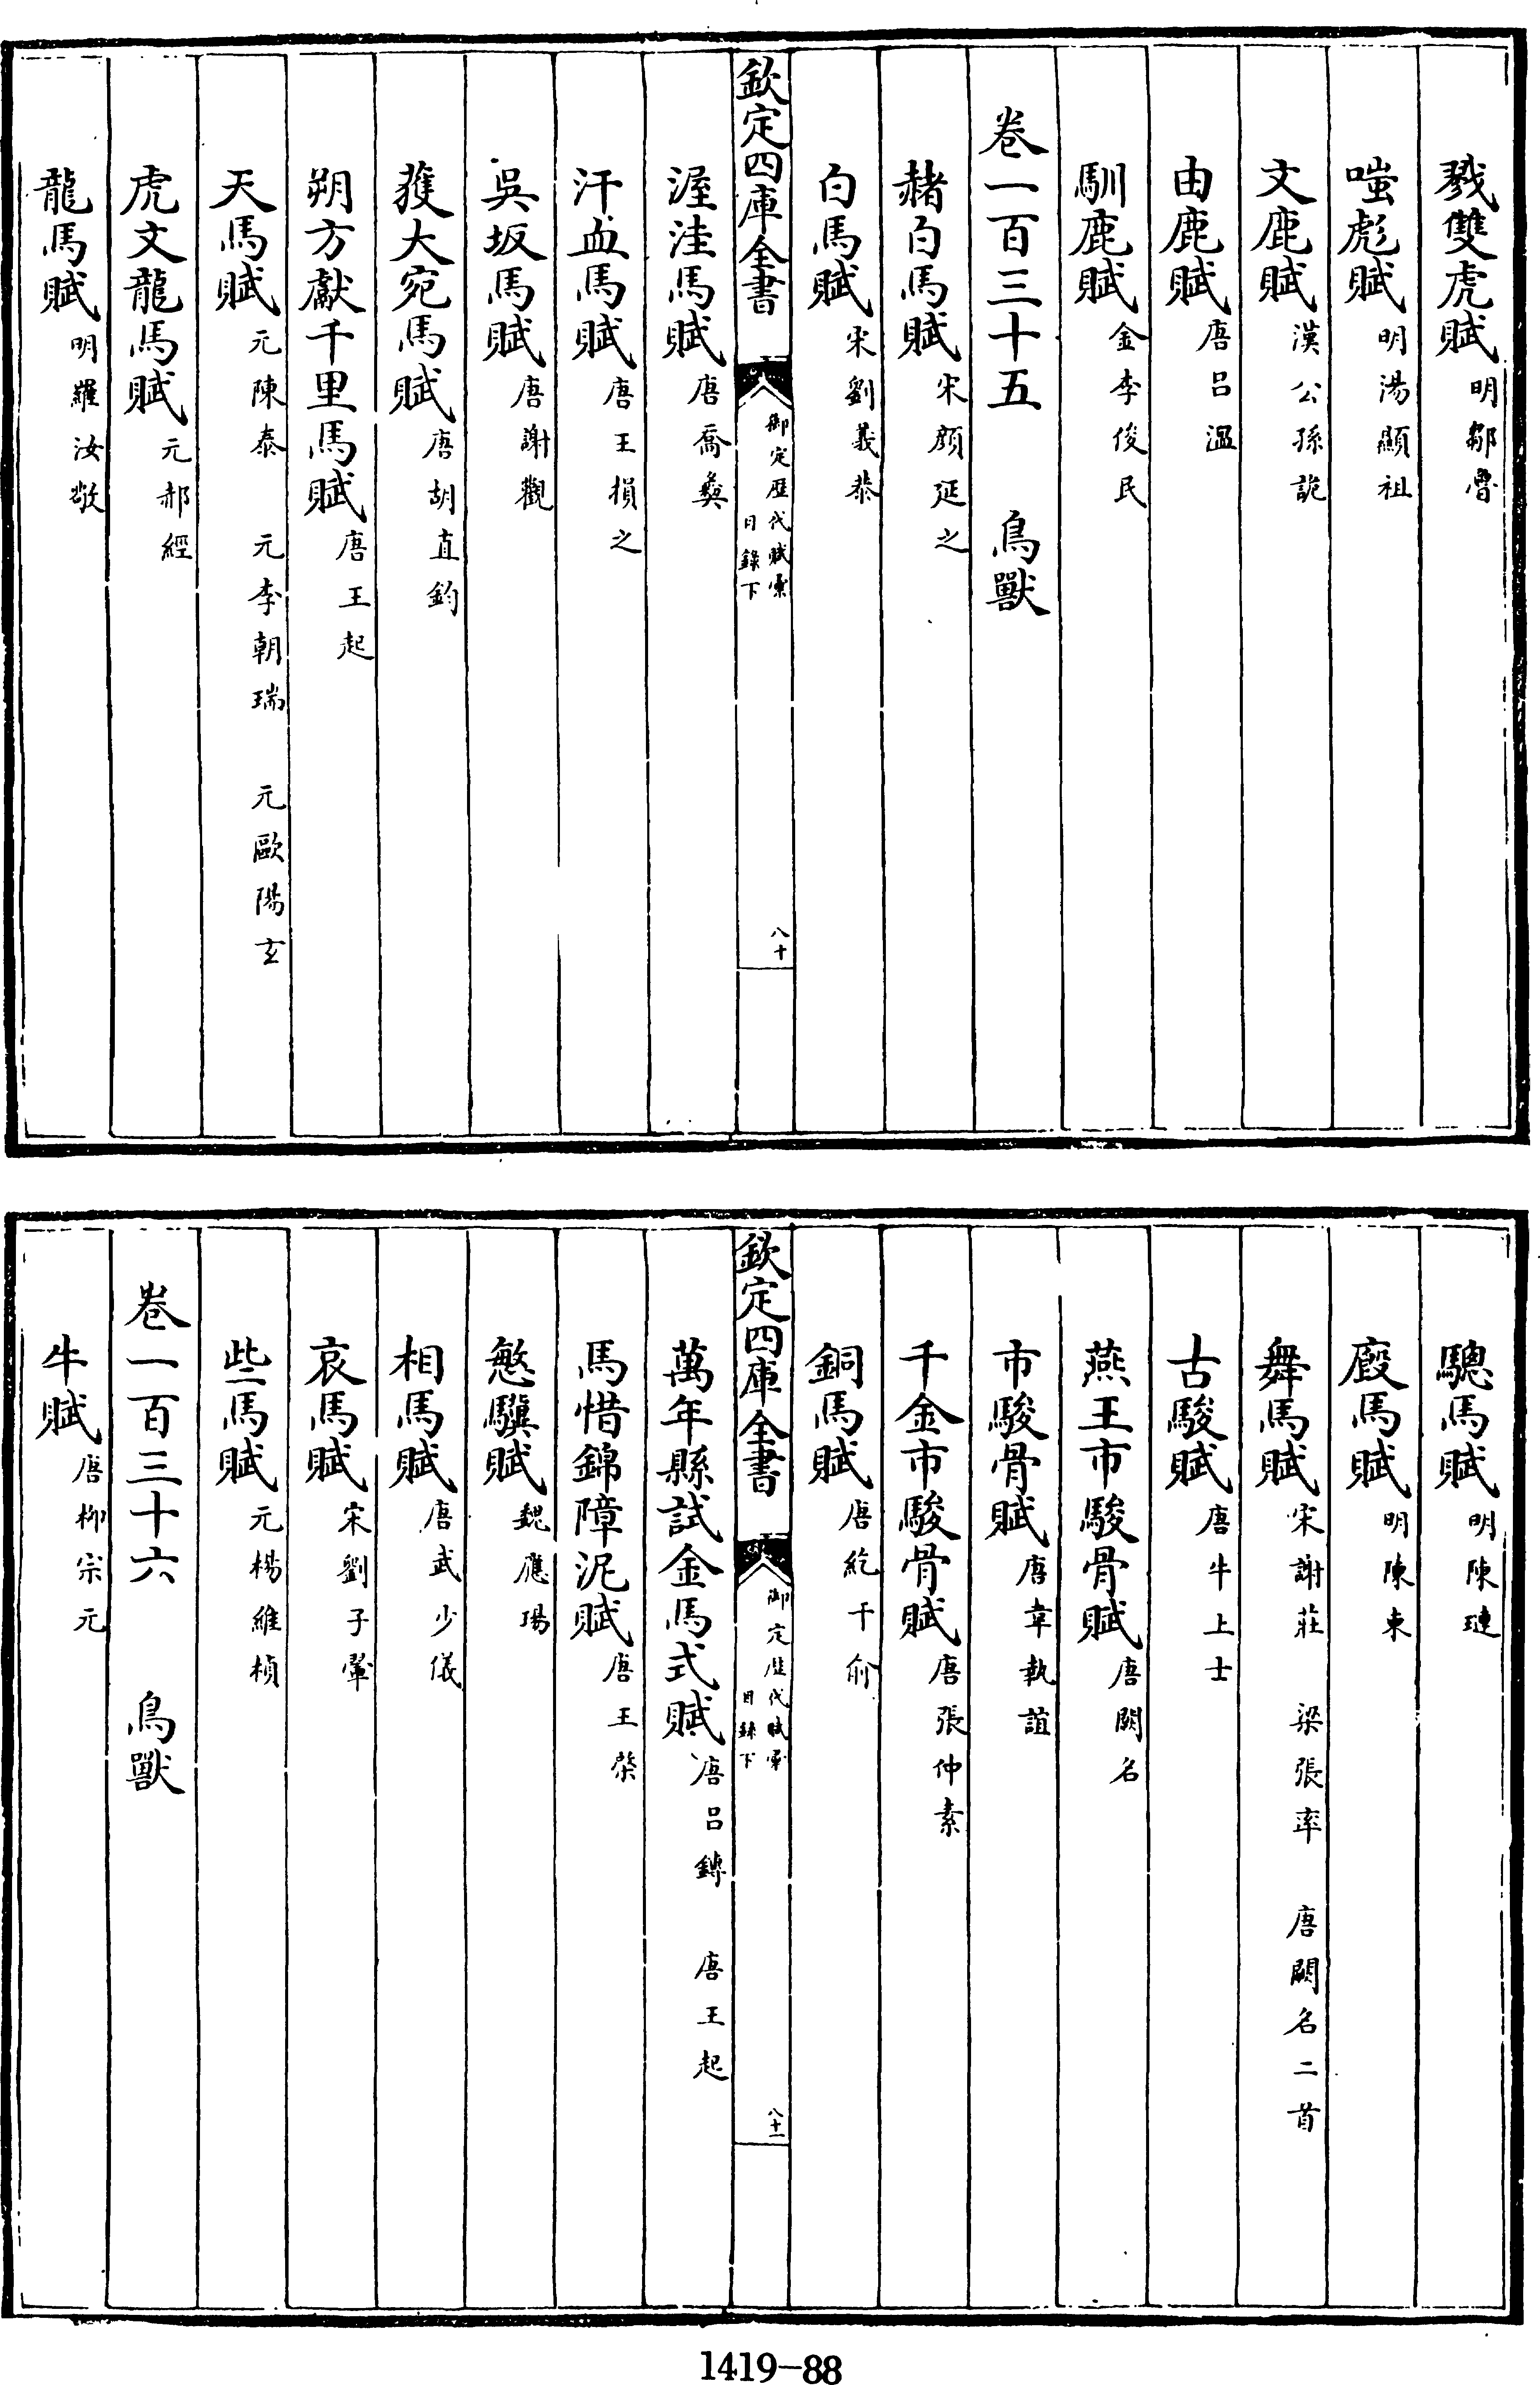 戮雙虎賦明鄒魯
嗤彪賦明湯顯祖
文鹿賦漢公孫詭
由鹿賦唐呂溫
馴鹿賦金李俊民
卷一百三十五　鳥獸
赭白馬賦宋顏延之
白馬賦宋劉義恭
欽定四庫全書　御定歴代賦彚目錄下　八十
渥洼馬賦唐喬彝
汗血馬賦唐王損之
吳坂馬賦唐謝觀
獲大宛馬賦唐胡直鈞
朔方獻千里馬賦唐王起
天馬賦元陳泰　元李朝瑞　元歐陽玄
虎文龍馬賦元郝經
龍馬賦明羅汝敬
驄馬賦明陳璉
廄馬賦明陳東
舞馬賦宋謝莊　梁張率　唐闕名二首
古駿賦唐牛上士
燕王市駿骨賦唐闕名
市駿骨賦唐韋執誼
千金市駿骨賦唐張仲素
銅馬賦唐紇干俞
欽定四庫全書　御定歴代賦彚目錄下　八十一
萬年縣試金馬式賦唐呂鎛　唐王起
馬惜錦障泥賦唐王棨
慜驥賦魏應瑒
相馬賦唐武少儀
哀馬賦宋劉子翬
些馬賦元楊維楨
卷一百三十六　鳥獸
牛賦唐柳宗元
1419-88